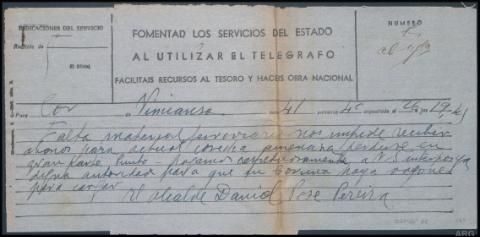 INDICACIONES DEL SERVICIO
FOMENTAD LOS SERVICIOS DEL ESTADO
AL UTILIZAR EL TELEGRAFO
FACILITAIS RECURSOS AL TESORO Y HACEIS OBRA NACIONAL
NUMERO
Para Cor Vimianzo 41
Falta material ferroviario nos impide recibir
abonos para actual cosecha amenaza perderse en
gran parte punto - posando respetuosamente a V.S interponga
digna autoridad para que en Coruña haya vagones
para cargar
El alcalde David Pose Pereira
ARG